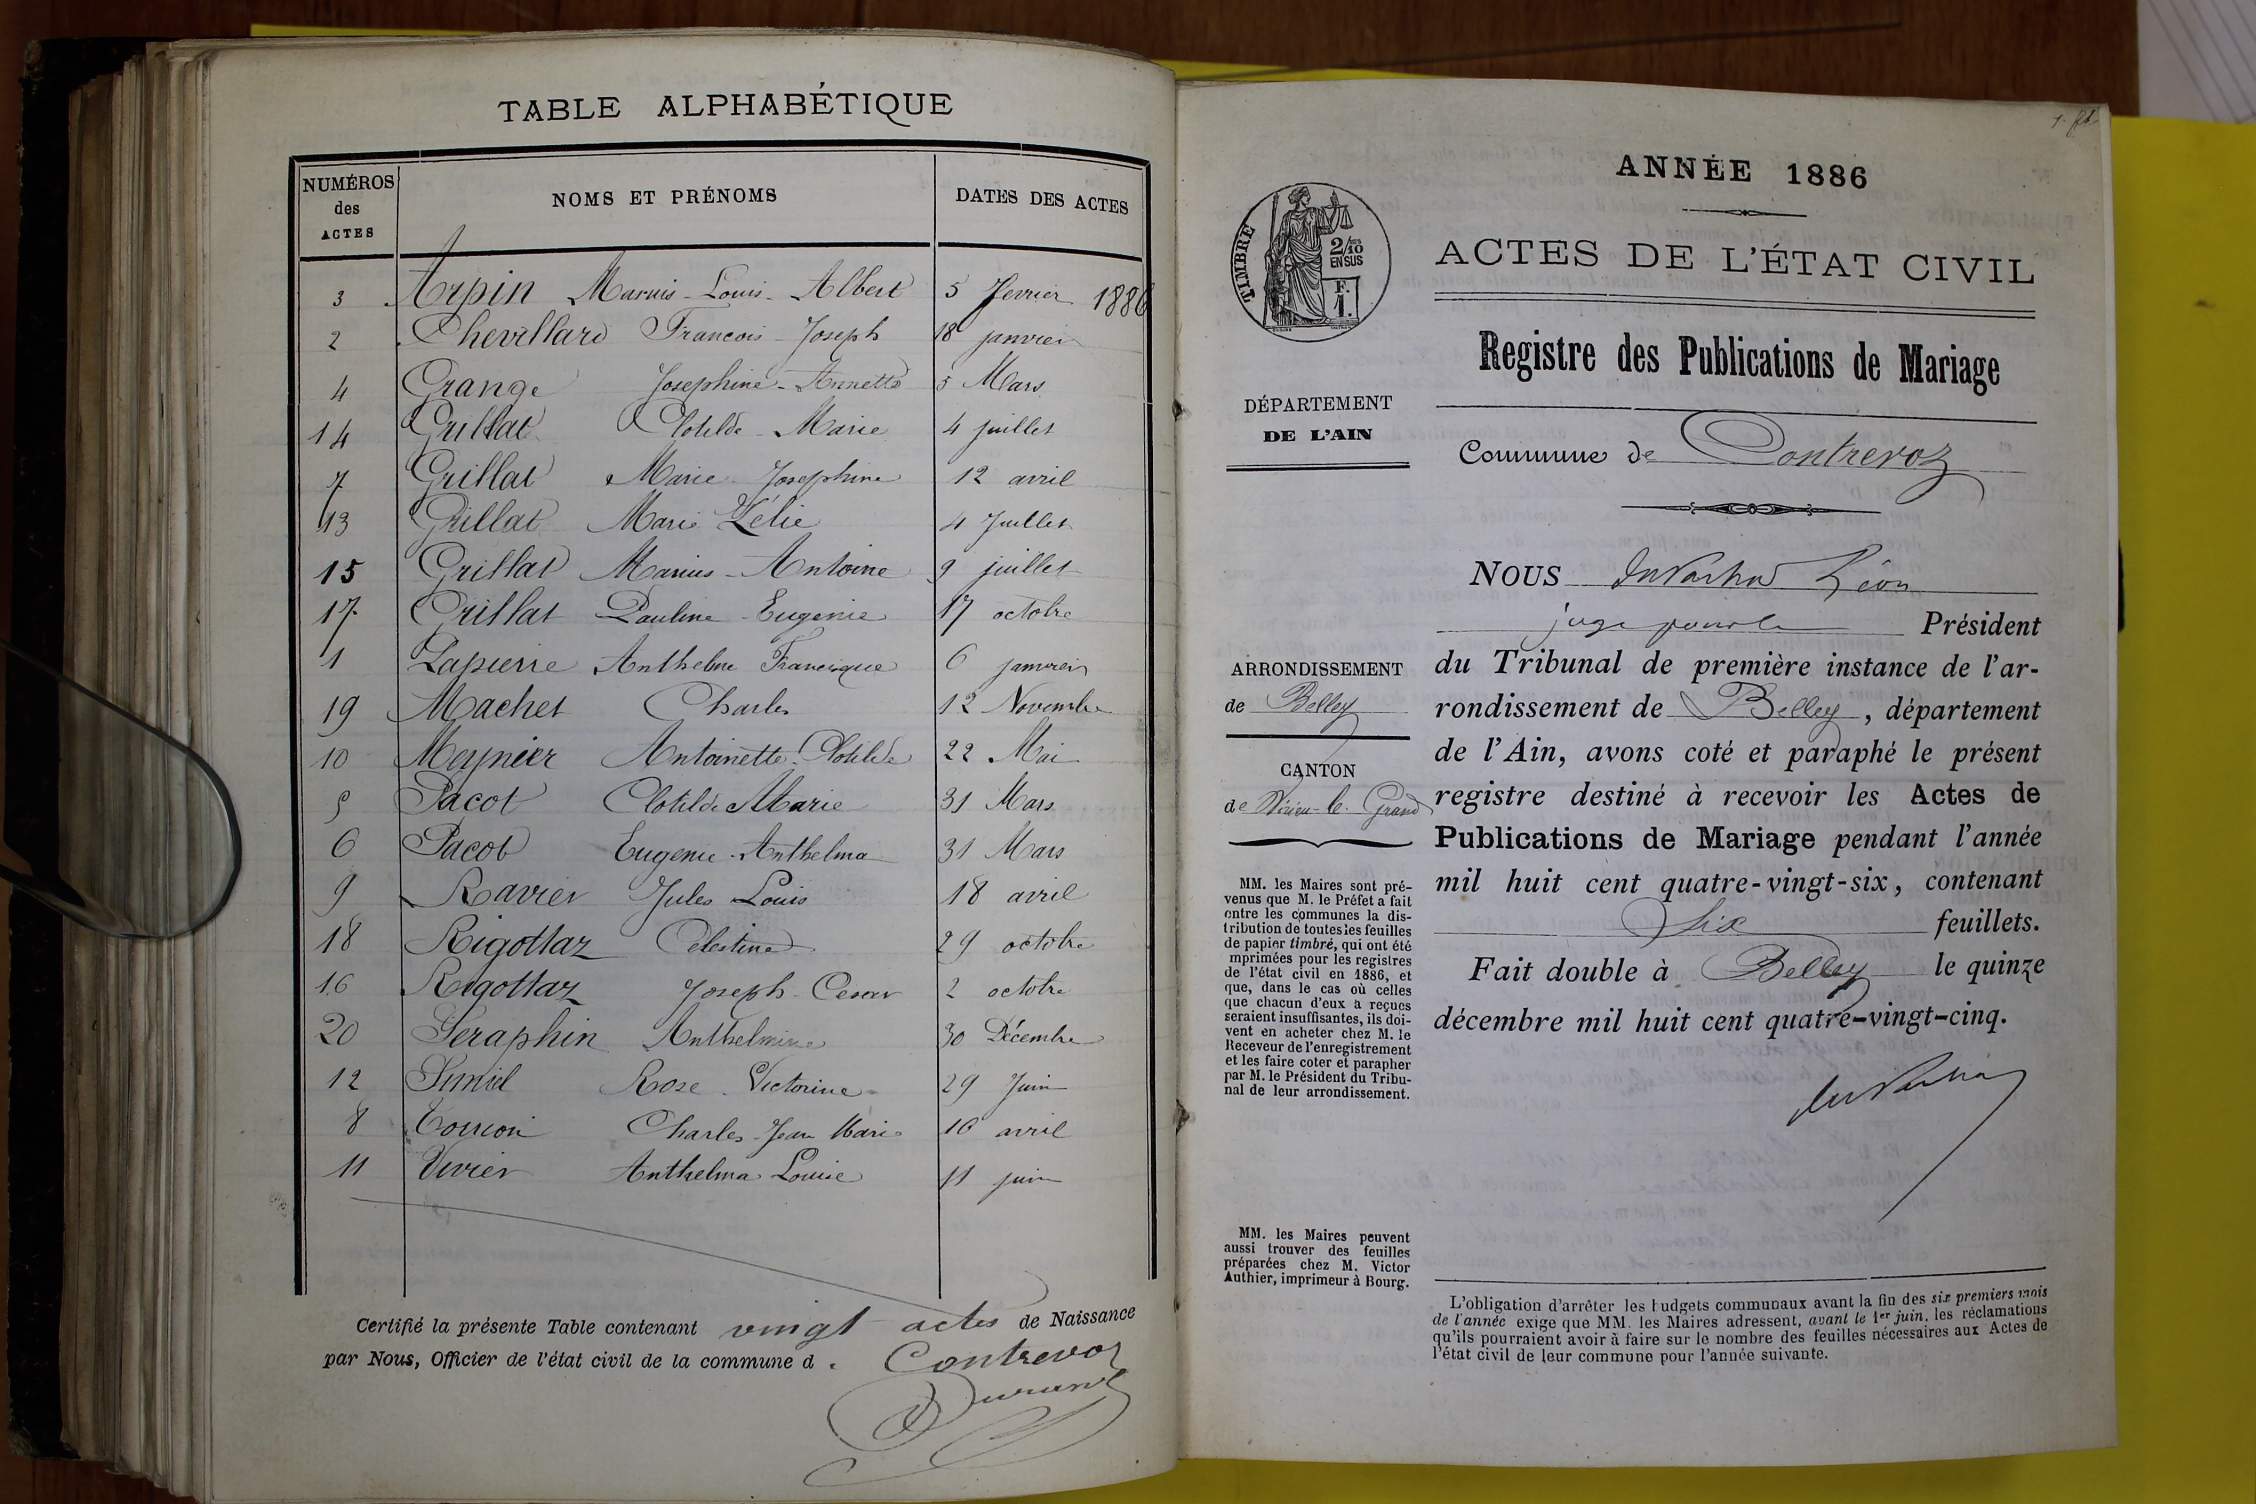 TABLE ALPHABÉTIQUE
NUMÉROS des ACTES NOMS ET PRÉNOMS DATES DES ACTES
3 Arpin Marius-Louis-Albert 5 fevrier 1886
2 Chevillard Francois-Joseph 18 janvier
4 Grange Josephine-Annette 5 Mars
14 Grillat Clotilde-Marie 4 juillet
7 Grillat Marie Josephine 12 avril
13 Grillat Marie Zélie 4 Juillet
15 Grillat Marius-Antoine 9 juillet
17 Grillat Pauline-Eugenie 17 octobre
1 Lapierre Anthelme Francisque 6 janvier
19 Machet Charles 12 Novembre
10 Meynier Antoinette-Clotilde 22 Mai
5 Pacot Clotilde Marie 31 Mars
6 Pacot Eugenie-Anthelma 31 Mars
9 Ravier Jules Louis 18 avril
18 Rigottaz Célestine 29 octobre
16 Rigottaz Joseph-Cesar 2 octobre
20 Seraphin Anthelmine 30 Décembre
12 Rose-Victorine 29 Juin
8 Charles-Jean Marie 16 avril
11 Vivier Anthelma Louise 11 juin
Certifié la présente Table contenant vingt actes de Naissance
par Nous, Officier de l'état civil de la commune d Contrevoz
Durand
ANNÉE 1886
TIMBRE
2/10
EN SUS
F.
1.
ACTES DE L'ÉTAT CIVIL
Registre des Publications de Mariage
DÉPARTEMENT
DE L'AIN
Commune de Contrevoz
NOUS Léon
juge pour le Président
ARRONDISSEMENT
de Belley
CANTON
de Virieu-le-Grand
du Tribunal de première instance de l'ar-
rondissement de Belley, département
de l'Ain, avons coté et paraphé le présent
registre destiné à recevoir les Actes de
Publications de Mariage pendant l'année
mil huit cent quatre-vingt-six, contenant
Six feuillets.
Fait double à Belley le quinze
décembre mil huit cent quatre-vingt-cinq.
MM. les Maires sont pré-
venus que M. le Préfet a fait
entre les communes la dis-
tribution de toutes les feuilles
de papier timbré, qui ont été
imprimées pour les registres
de l'état civil en 1886, et
que, dans le cas où celles
que chacun d'eux a reçues
seraient insuffisantes, ils doi-
vent en acheter chez M. le
Receveur de l'enregistrement
et les faire coter et parapher
par M. le Président du Tribu-
nal de leur arrondissement.
MM. les Maires peuvent
aussi trouver des feuilles
préparées chez M. Victor
Authier, imprimeur à Bourg.
L'obligation d'arrêter les budgets communaux avant la fin des six premiers mois
de l'année exige que MM. les Maires adressent, avant le 1er juin, les réclamations
qu'ils pourraient avoir à faire sur le nombre des feuilles nécessaires aux Actes de
l'état civil de leur commune pour l'année suivante.